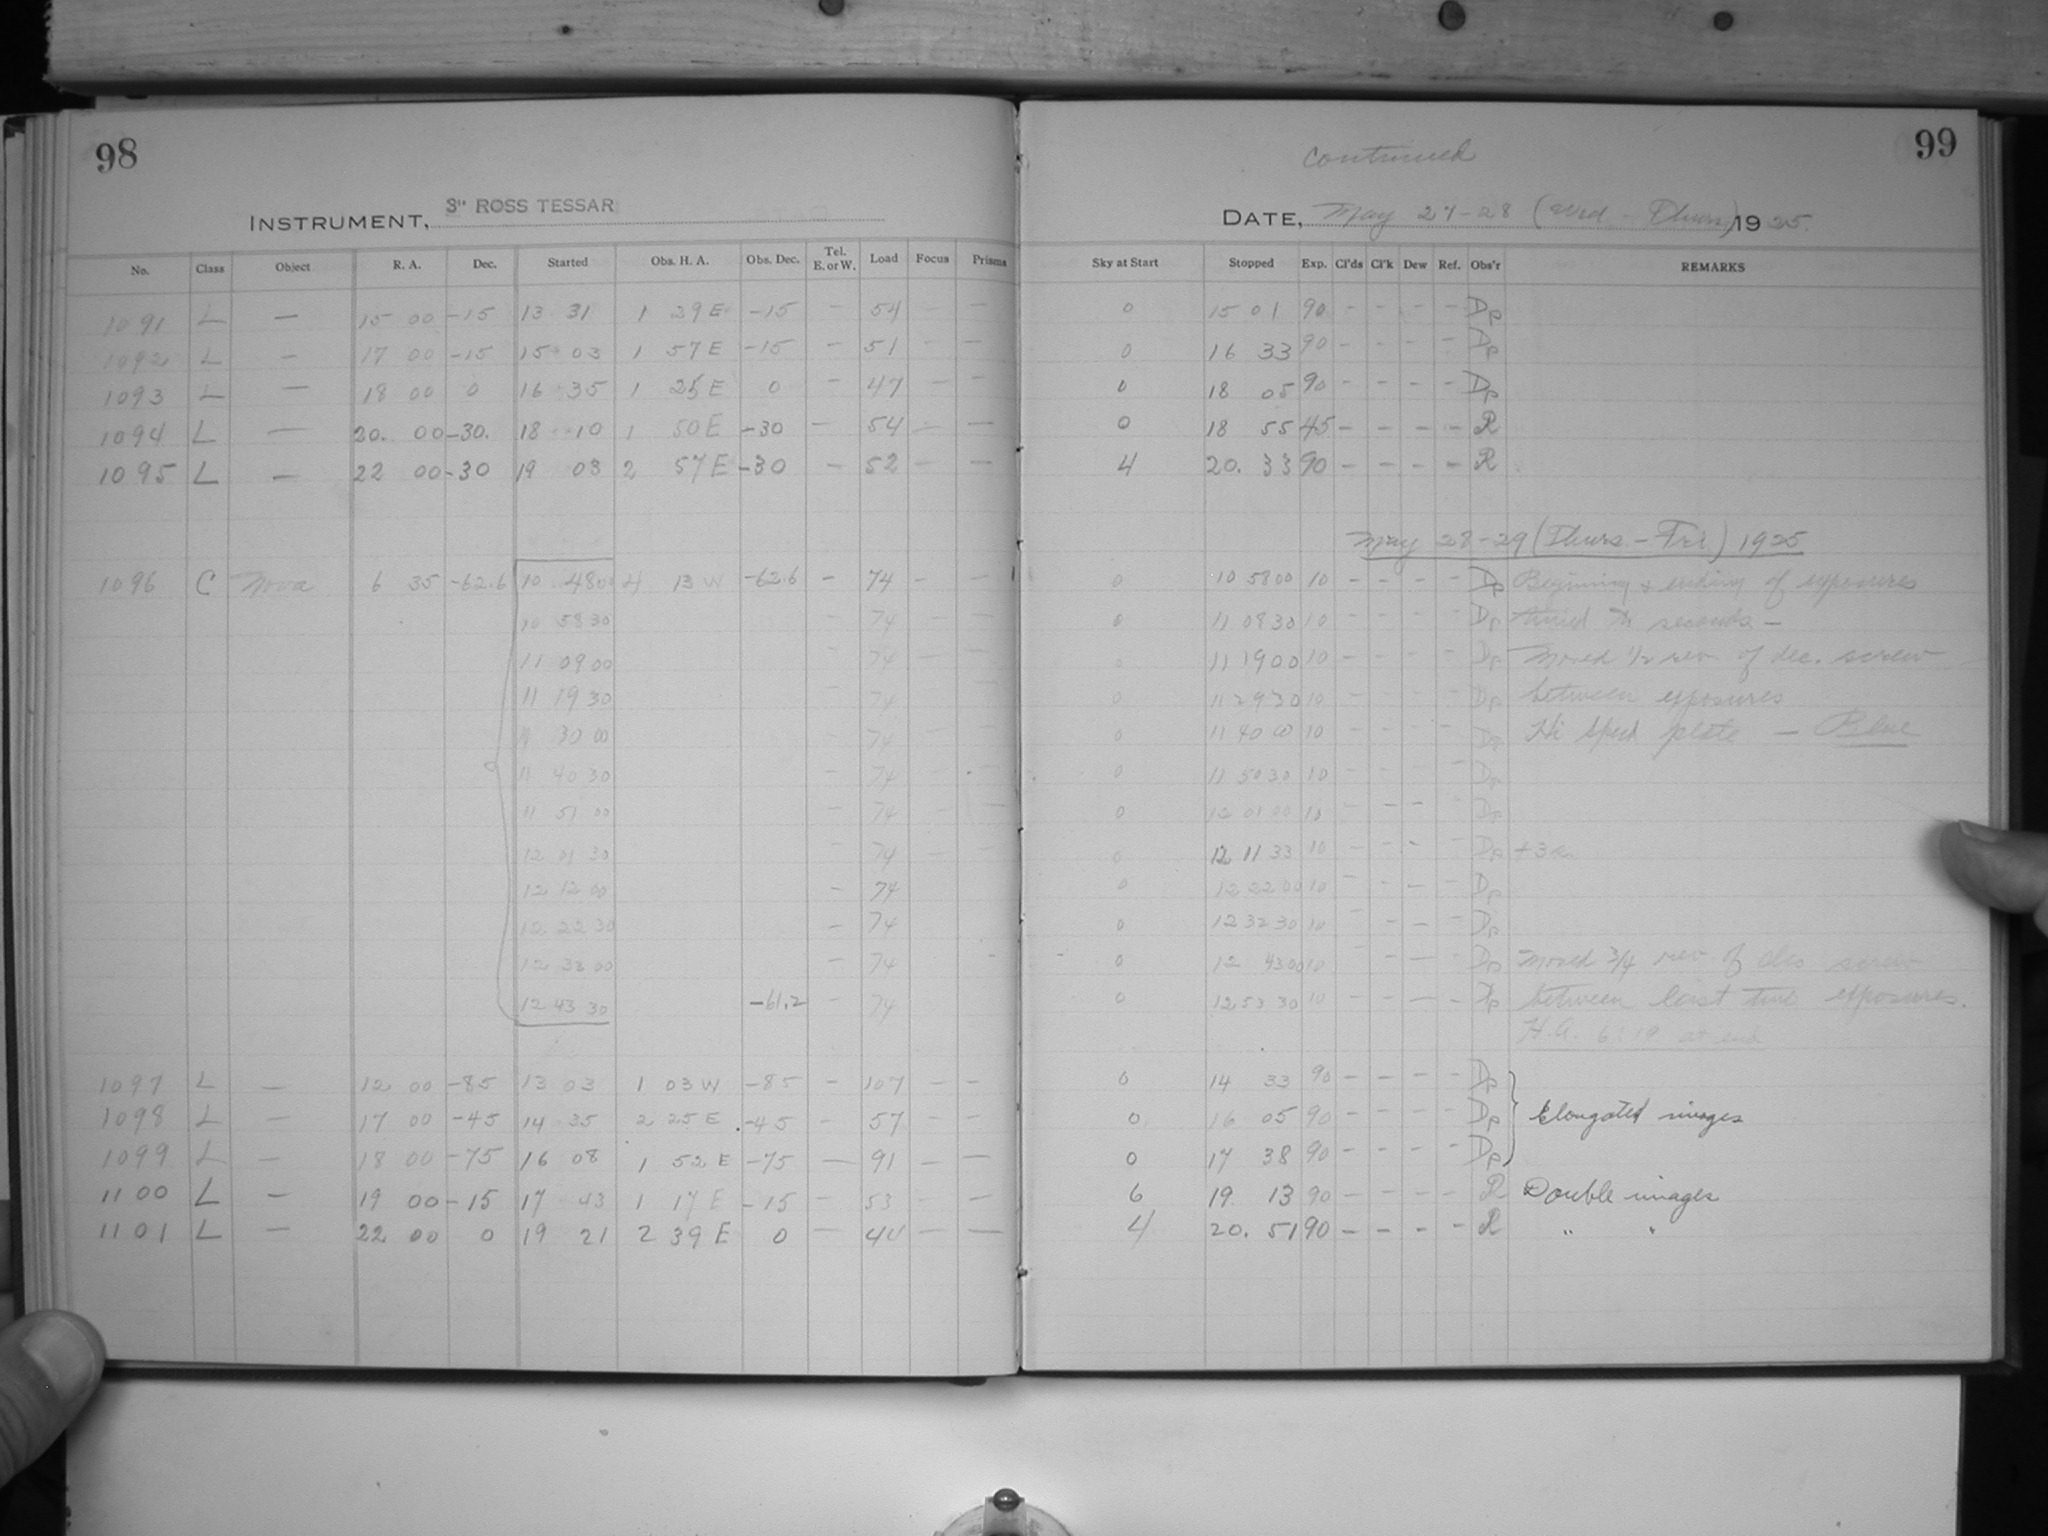 98
INSTRUMENT, 3" ROSS TESSAR
No. Class Object R. A. Dec. Started Obs. H. A. Obs. Dec. Tel. E. or W. Load Focus Prisms
1091 L — 15 00 -15 13 31 1 29 E -15 — 54 — —
1092 L — 17 00 -15 15 03 1 57 E -15 — 51 — —
1093 L — 18 00 0 16 35 1 25 E 0 — 47 — —
1094 L — 20. 00 -30. 18 10 1 50 E -30 — 54 — —
1095 L — 22 00 -30 19 03 2 57 E -30 — 52 — —
1096 C Nova 6 35 -62.6 10 48 00 4 13 W -62.6 — 74 — —
10 58 30 — 74 — —
11 09 00 — 74 — —
11 19 30 — 74 — —
11 30 00 — 74 — —
11 40 30 — 74 — —
11 51 00 — 74 — —
12 01 30 — 74 — —
12 12 00 — 74
12 22 30 — 74
12 33 00 — 74
12 43 30 -61.2 — 74
1097 L — 12 00 -85 13 03 1 03 W -85 — 107 — —
1098 L — 17 00 -45 14 35 2 25 E -45 — 57 — —
1099 L — 18 00 -75 16 08 1 52 E -75 — 91 — —
1100 L — 19 00 -15 17 43 1 17 E -15 — 53 — —
1101 L — 22 00 0 19 21 2 39 E 0 — 44 — —
99
Continued
DATE, May 27-28 (Wed. - Thurs) 1925.
Sky at Start Stopped Exp. Cl'ds Cl'k Dew Ref. Obs'r REMARKS
0 15 01 90 — — — — Dp
0 16 33 90 — — — — Dp
0 18 05 90 — — — — Dp
0 18 55 45 — — — — R
4 20. 33 90 — — — — R
May 28-29 (Thurs - Fri) 1925
0 10 58 00 10 — — — — Dp Beginning & ending of exposures
0 11 08 30 10 — — — — Dp timed to seconds —
0 11 19 00 10 — — — — Dp Moved 1/2 rev. of dec. screw
0 11 29 30 10 — — — — Dp between exposures
0 11 40 00 10 — — — — Dp Hi Speed plate — Blue
0 11 50 30 10 — — — — Dp
0 12 01 00 10 — — — — Dp
0 12 11 33 10 — — — — Dp + 3s.
0 12 22 00 10 — — — — Dp
0 12 32 30 10 — — — — Dp
0 12 43 00 10 — — — — Dp Moved 3/4 rev of dec screw
0 12 53 30 10 — — — — Dp between last two exposures.
H.A. 6:19 at end
0 14 33 90 — — — — Dp
0 16 05 90 — — — — Dp Elongated images
0 17 38 90 — — — — Dp
6 19. 13 90 — — — — R Double images
4 20. 51 90 — — — — R " "